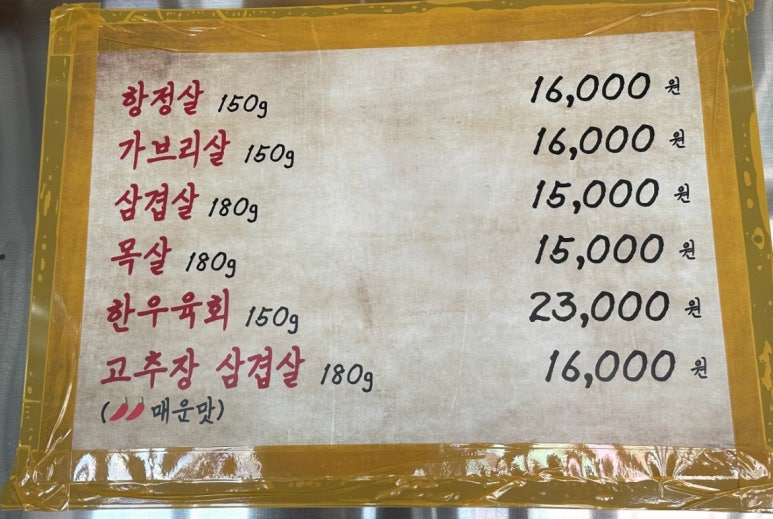 항정살 150g 16,000 원
가브리살 150g 16,000 원
삼겹살 180g 15,000 원
목살 180g 15,000 원
한우육회 150g 23,000 원
고추장 삼겹살 180g 16,000 원
(매운맛)